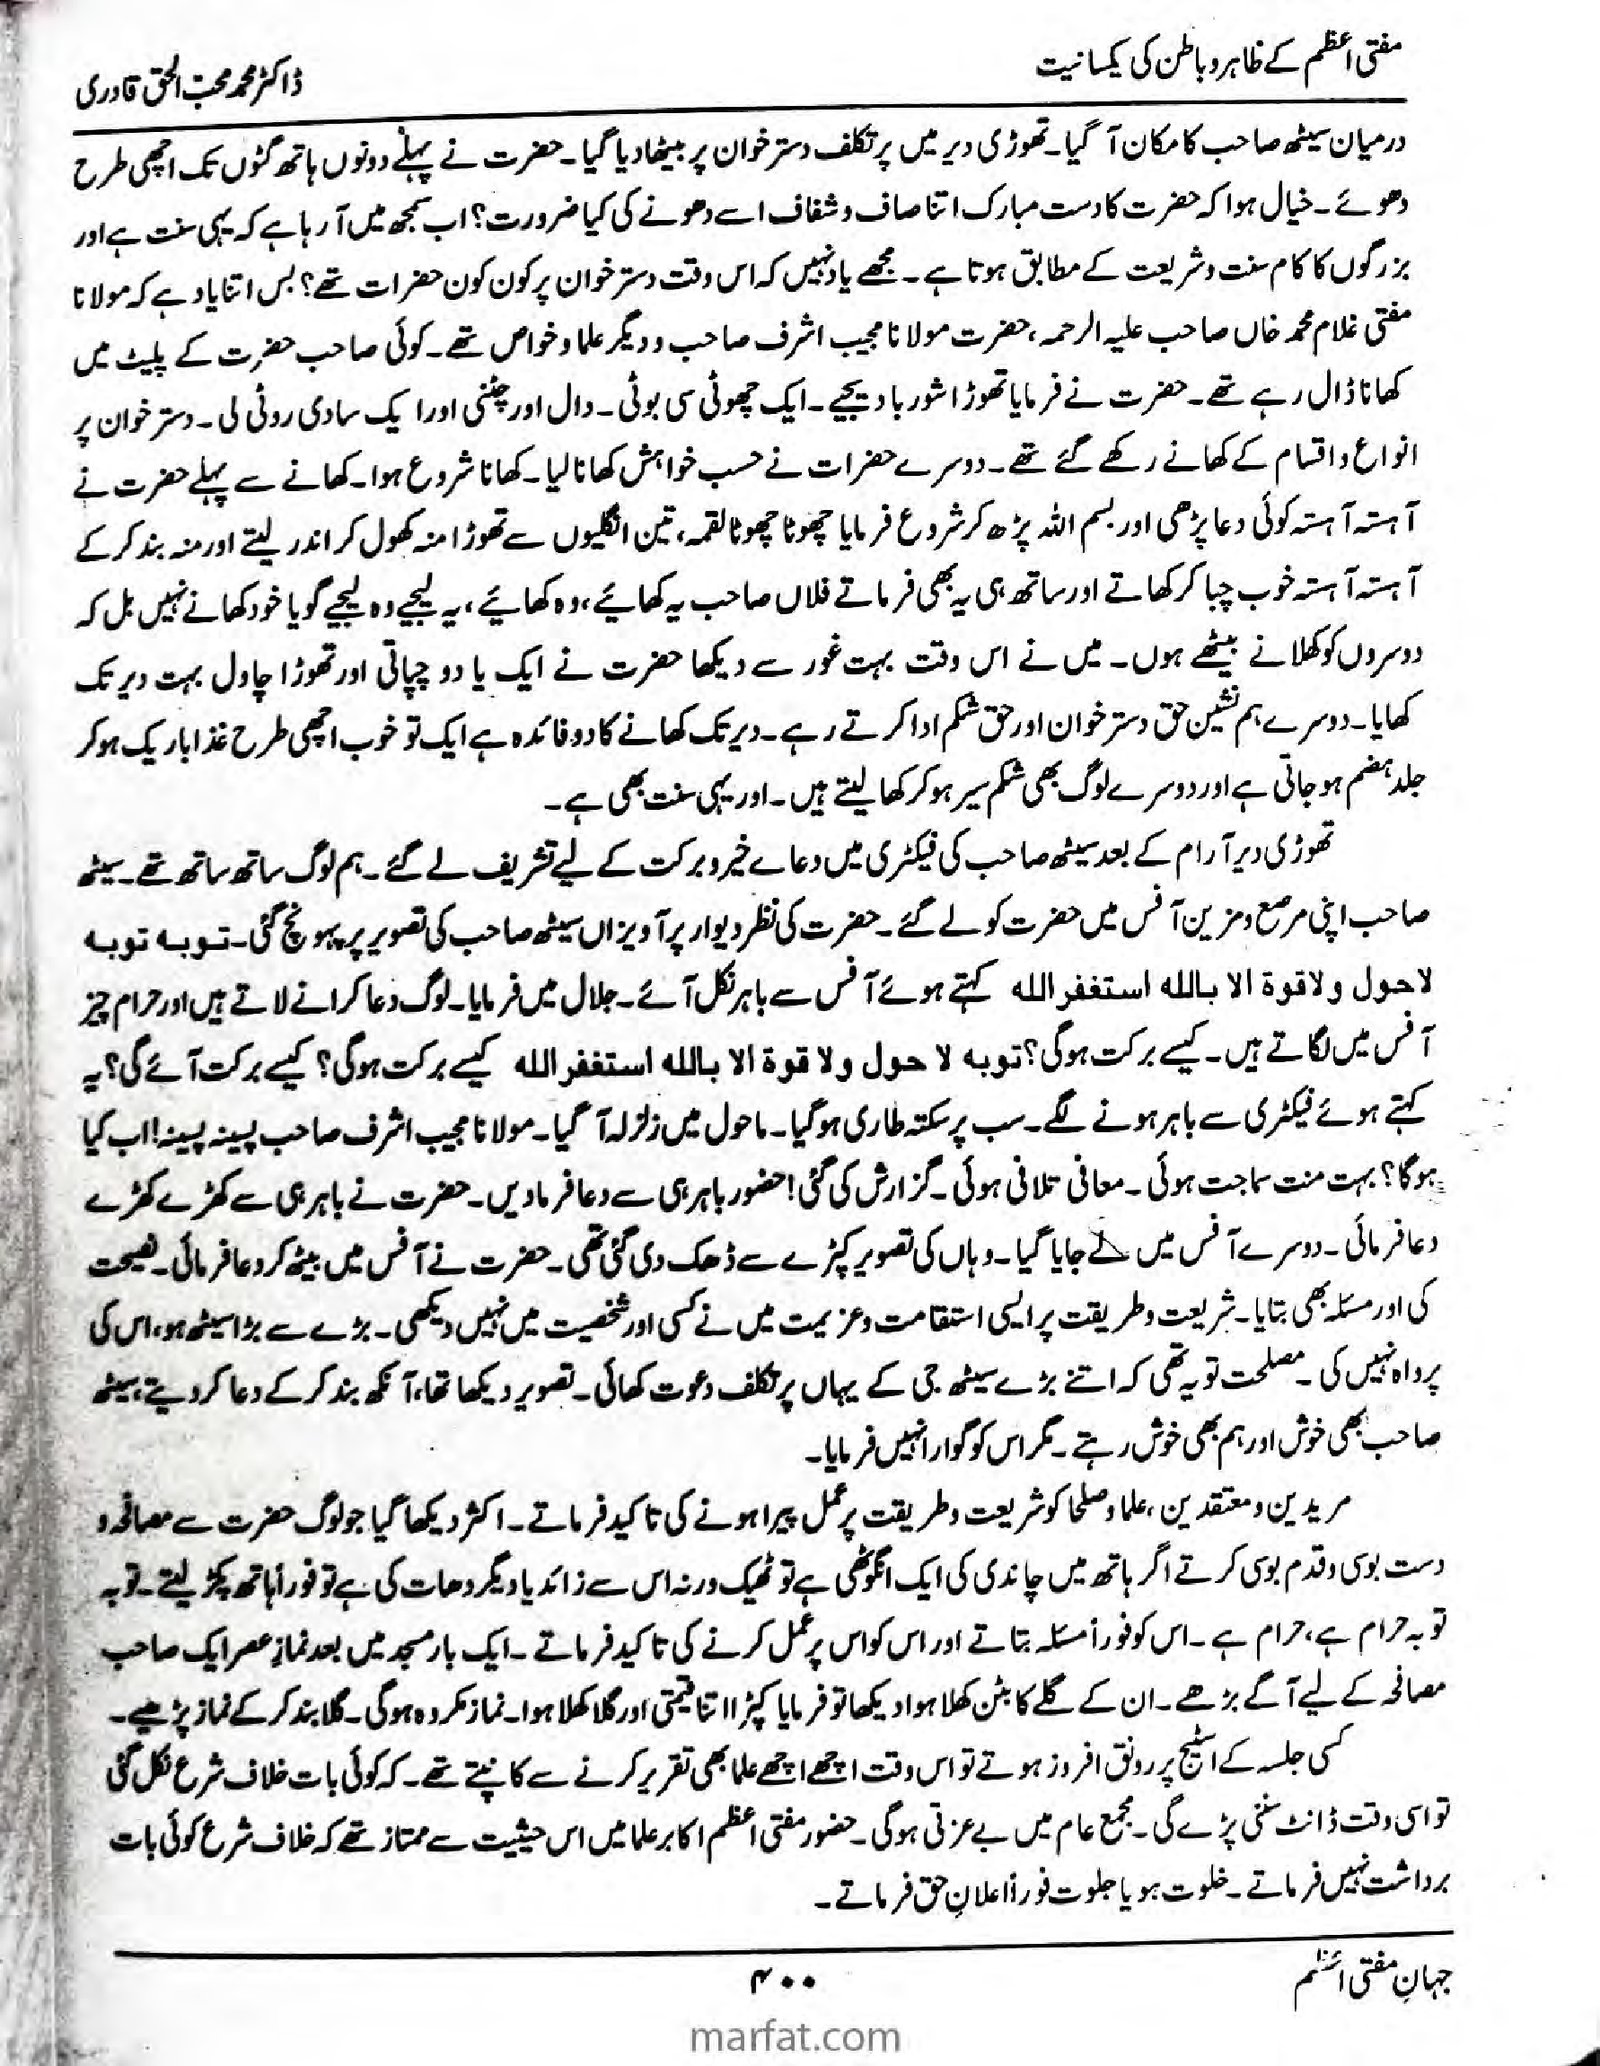 مفتی اعظم کے ظاہر و باطن کی یکسانیت
ڈاکٹر محمد محبّ الحق قادری
درمیان سیٹھ صاحب کا مکان آ گیا۔ تھوڑی دیر میں پر تکلف دستر خوان پر بیٹھا دیا گیا۔ حضرت نے پہلے دونوں ہاتھ گٹوں تک اچھی طرح
دھوئے۔ خیال ہوا کہ حضرت کا دست مبارک اتنا صاف و شفاف اسے دھونے کی کیا ضرورت؟ اب سمجھ میں آ رہا ہے کہ یہی سنت ہے اور
بزرگوں کا کام سنت و شریعت کے مطابق ہوتا ہے۔ مجھے یاد نہیں کہ اس وقت دستر خوان پر کون کون حضرات تھے؟ بس اتنا یاد ہے کہ مولانا
مفتی غلام محمد خاں صاحب علیہ الرحمہ، حضرت مولانا مجیب اشرف صاحب و دیگر علما و خواص تھے۔ کوئی صاحب حضرت کے پلیٹ میں
کھانا ڈال رہے تھے۔ حضرت نے فرمایا تھوڑا شوربا دیجیے۔ ایک چھوٹی سی بوٹی۔ دال اور چٹنی اور ایک سادی روٹی لی۔ دستر خوان پر
انواع و اقسام کے کھانے رکھے گئے تھے۔ دوسرے حضرات نے حسب خواہش کھانا لیا۔ کھانا شروع ہوا۔ کھانے سے پہلے حضرت نے
آہستہ آہستہ کوئی دعا پڑھی اور بسم اللہ پڑھ کر شروع فرمایا چھوٹا چھوٹا لقمہ، تین انگلیوں سے تھوڑا منہ کھول کر اندر لیتے اور منہ بند کر کے
آہستہ آہستہ خوب چبا کر کھاتے اور ساتھ ہی یہ بھی فرماتے فلاں صاحب یہ کھائیے، وہ کھائیے، یہ لیجیے وہ لیجیے گویا خود کھانے نہیں بل کہ
دوسروں کو کھلانے بیٹھے ہوں۔ میں نے اس وقت بہت غور سے دیکھا حضرت نے ایک یا دو چپاتی اور تھوڑا چاول بہت دیر تک
کھایا۔ دوسرے ہم نشین حق دستر خوان اور حق شکم ادا کرتے رہے۔ دیر تک کھانے کا دو فائدہ ہے ایک تو خوب اچھی طرح غذا باریک ہو کر
جلد ہضم ہو جاتی ہے اور دوسرے لوگ بھی شکم سیر ہو کر کھا لیتے ہیں۔ اور یہی سنت بھی ہے۔
تھوڑی دیر آرام کے بعد سیٹھ صاحب کی فیکٹری میں دعاے خیر و برکت کے لیے تشریف لے گئے۔ ہم لوگ ساتھ ساتھ تھے۔ سیٹھ
صاحب اپنی مرصع و مزین آفس میں حضرت کو لے گئے۔ حضرت کی نظر دیوار پر آویزاں سیٹھ صاحب کی تصویر پر پہونچ گئی۔ توبہ توبہ
لا حول ولا قوة الا بالله استغفر الله کہتے ہوئے آفس سے باہر نکل آئے۔ جلال میں فرمایا۔ لوگ دعا کرانے لاتے ہیں اور حرام چیز
آفس میں لگاتے ہیں۔ کیسے برکت ہوگی؟ توبه لا حول ولا قوة الا بالله استغفر الله کیسے برکت ہوگی؟ کیسے برکت آئے گی؟ یہ
کہتے ہوئے فیکٹری سے باہر ہونے لگے۔ سب پر سکتہ طاری ہو گیا۔ ماحول میں زلزلہ آ گیا۔ مولانا مجیب اشرف صاحب پسینہ پسینہ! اب کیا
ہوگا؟ بہت منت سماجت ہوئی۔ معافی تلافی ہوئی۔ گزارش کی گئی! حضور باہر ہی سے دعا فرما دیں۔ حضرت نے باہر ہی سے کھڑے کھڑے
دعا فرمائی۔ دوسرے آفس میں لے جایا گیا۔ وہاں کی تصویر کپڑے سے ڈھک دی گئی تھی۔ حضرت نے آفس میں بیٹھ کر دعا فرمائی۔ نصیحت
کی اور مسئلہ بھی بتایا۔ شریعت و طریقت پر ایسی استقامت و عزیمت میں نے کسی اور شخصیت میں نہیں دیکھی۔ بڑے سے بڑا سیٹھ ہو، اس کی
پرواہ نہیں کی۔ مصلحت تو یہ تھی کہ اتنے بڑے سیٹھ جی کے یہاں پر تکلف دعوت کھائی۔ تصویر دیکھا تھا، آنکھ بند کر کے دعا کر دیتے، سیٹھ
صاحب بھی خوش اور ہم بھی خوش رہتے۔ مگر اس کو گوارا نہیں فرمایا۔
مریدین و معتقدین، علما و صلحا کو شریعت و طریقت پر عمل پیرا ہونے کی تاکید فرماتے۔ اکثر دیکھا گیا جو لوگ حضرت سے مصافحہ و
دست بوسی و قدم بوسی کرتے اگر ہاتھ میں چاندی کی ایک انگوٹھی ہے تو ٹھیک ورنہ اس سے زائد یا دیگر دھات کی ہے تو فوراً ہاتھ پکڑ لیتے۔ توبہ
توبہ حرام ہے، حرام ہے۔ اس کو فوراً مسئلہ بتاتے اور اس کو اس پر عمل کرنے کی تاکید فرماتے۔ ایک بار مسجد میں بعد نمازِ عصر ایک صاحب
مصافحہ کے لیے آگے بڑھے۔ ان کے گلے کا بٹن کھلا ہوا دیکھا تو فرمایا کپڑا اتنا قیمتی اور گلا کھلا ہوا۔ نماز مکروہ ہوگی۔ گلا بند کر کے نماز پڑھیے۔
کسی جلسہ کے اسٹیج پر رونق افروز ہوتے تو اس وقت اچھے اچھے علما بھی تقریر کرنے سے کانپتے تھے۔ کہ کوئی بات خلاف شرع نکل گئی
تو اسی وقت ڈانٹ سننی پڑے گی۔ مجمع عام میں بے عزتی ہوگی۔ حضور مفتی اعظم اکابر علما میں اس حیثیت سے ممتاز تھے کہ خلاف شرع کوئی بات
برداشت نہیں فرماتے۔ خلوت ہو یا جلوت فوراً اعلانِ حق فرماتے۔
جہانِ مفتی اعظم
۴۰۰
marfat.com